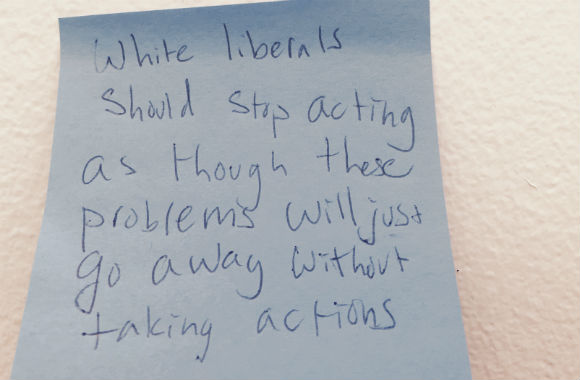 White liberals
should stop acting
as though these
problems will just
go away without
taking actions